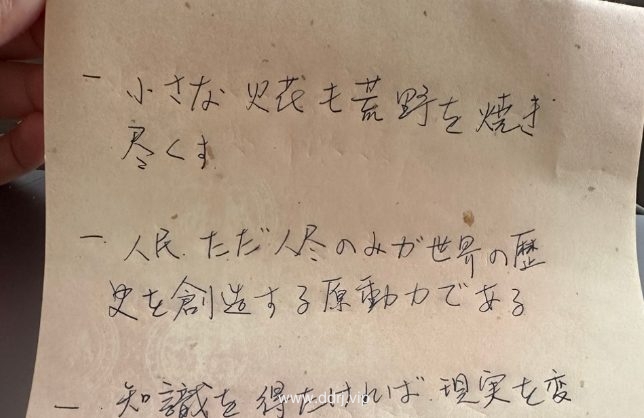 一 小さな火花も荒野を焼き
尽くす
一 人民、ただ人民のみが世界の歴
史を創造する原動力である
一 知識を得たければ、現実を変
www.ddrj.vip